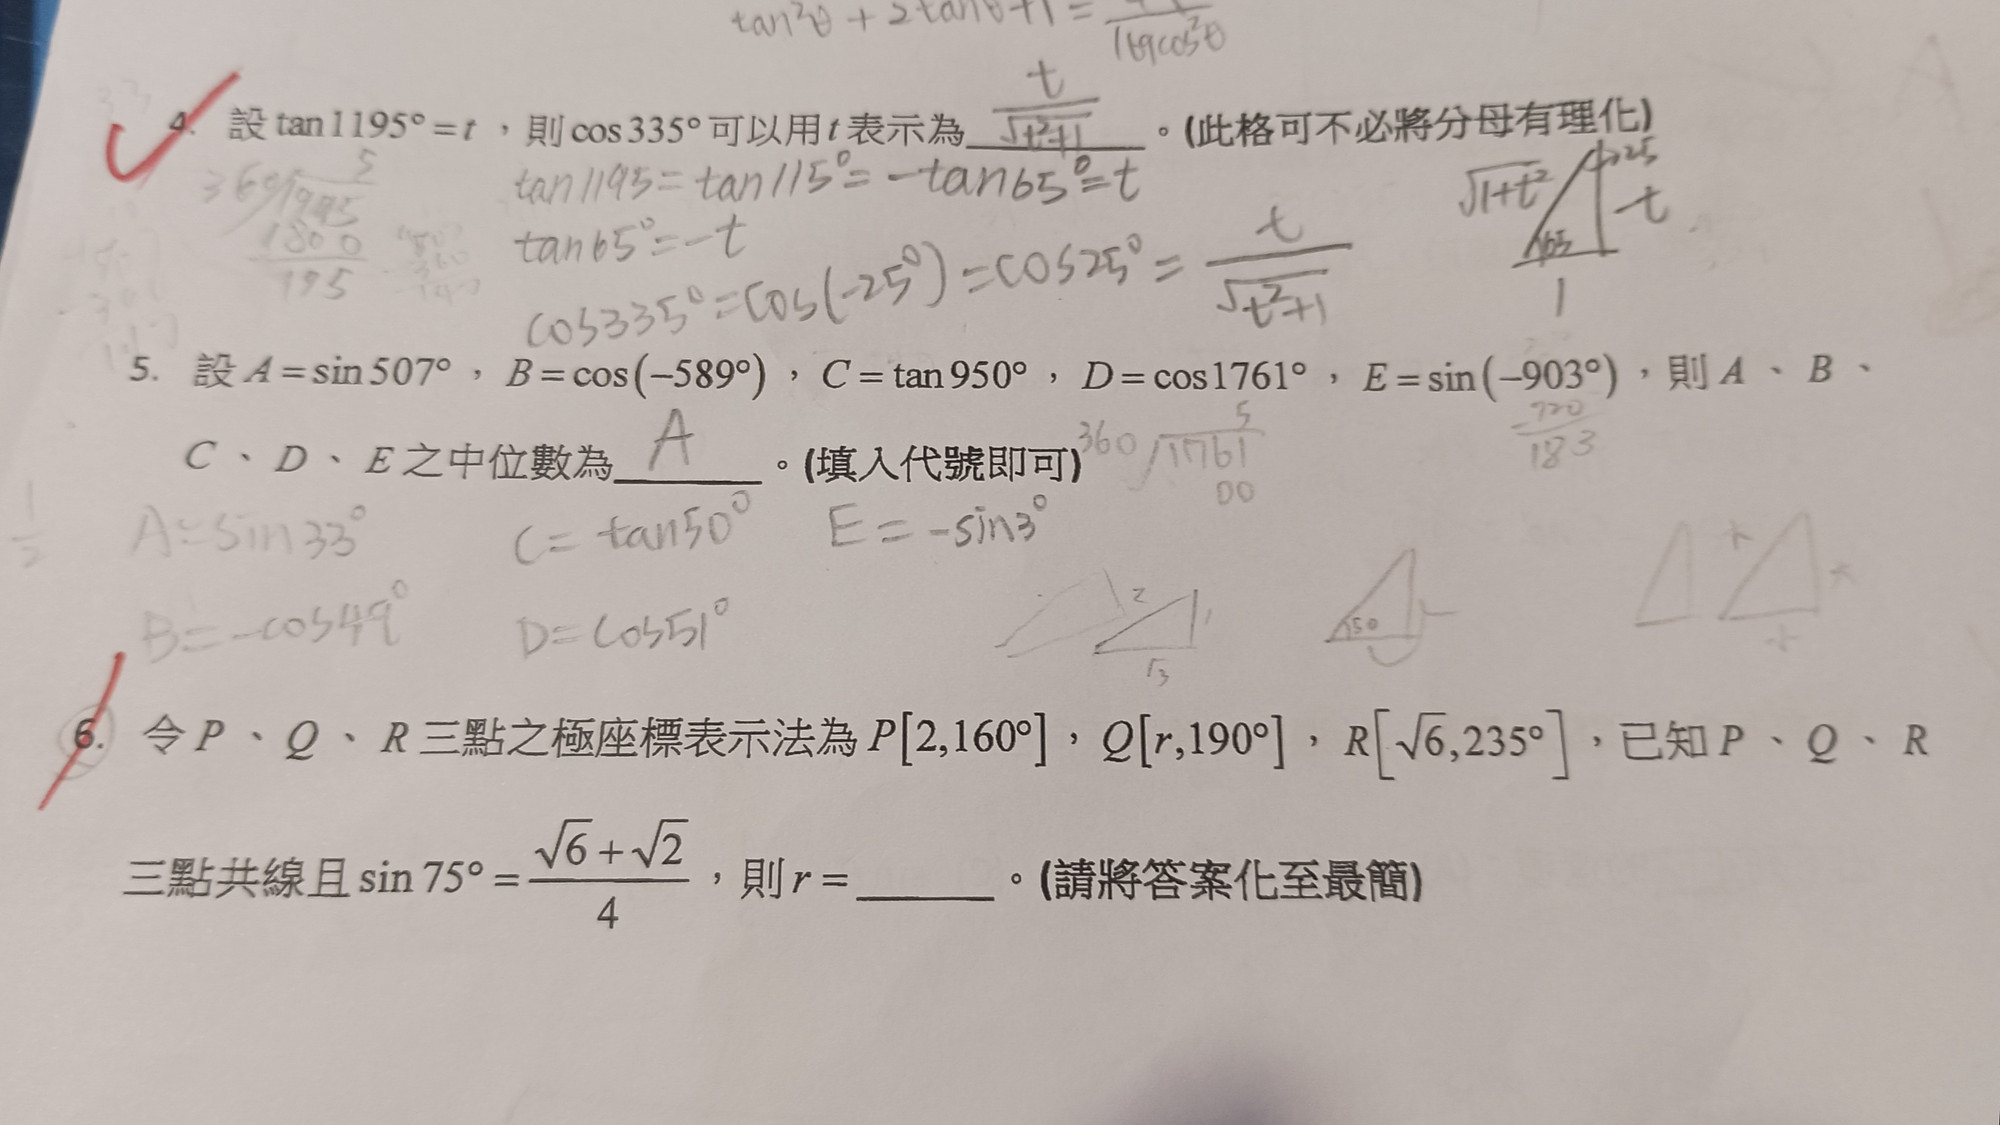 tan²θ + 2tanθ+1 =
169cos²θ
4. 設 tan1195°=t ，則cos335°可以用t表示為 t/√t²+1 。(此格可不必將分母有理化)
tan1195=tan115°=-tan65°=t
√1+t²
25
-t
65
1
360
5
1800
195
tan65°=-t
cos335°=cos(-25°)=cos25°= t/√t²+1
5. 設 A=sin507° ，B=cos(−589°) ，C=tan950° ，D=cos1761° ，E=sin(−903°) ，則 A 、 B 、
720
183
C 、 D 、 E 之中位數為 A 。(填入代號即可)
360
5
1761
00
A=sin33°
C= tan50°
E= -sin3°
1/2
B=-cos49°
D=cos51°
2
1
√3
50
6. 令 P 、 Q 、 R 三點之極座標表示法為 P[2,160°] ，Q[r,190°] ，R[√6,235°] ，已知 P 、 Q 、 R
三點共線且 sin75°= (√6+√2)/4 ，則 r = ______ 。(請將答案化至最簡)